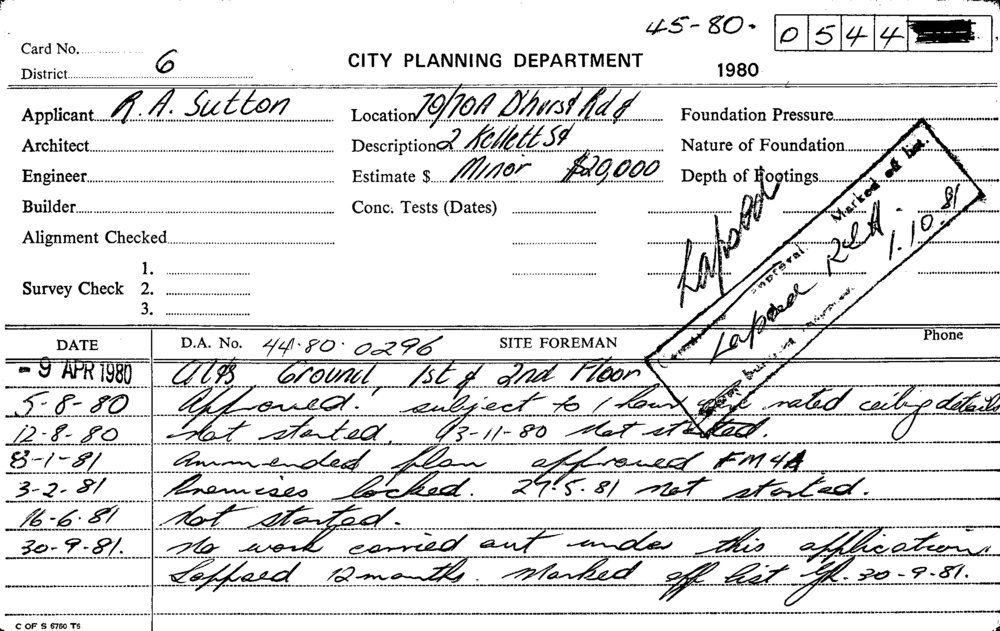 45-80. 0544
Card No.
District 6
CITY PLANNING DEPARTMENT
1980
Applicant R.A. Sutton
Location 70/70A D'hurst Rd &
Foundation Pressure
Architect
Description 2 Kellett St
Nature of Foundation
Engineer
Estimate $ Minor $20,000
Depth of Footings
Builder
Conc. Tests (Dates)
Alignment Checked
Survey Check 1.
2.
3.
Lapsed
Marked off list.
Approval
Lapsed
1.10.81
DATE
D.A. No. 44·80·0296
SITE FOREMAN
Phone
- 9 APR 1980 Alts Ground 1st & 2nd Floor
5-8-80 Approved! subject to 1 hour rated ceiling details
12-8-80 Not started. 13-11-80 Not started.
8-1-81 Ammended plan approved FM4A
3-2-81 Premises locked. 27-5-81 Not started.
16-6-81 Not started.
30-9-81. No work carried out under this application.
Lappsed 12 months. Marked off list 30-9-81.
C OF S 6760 T6